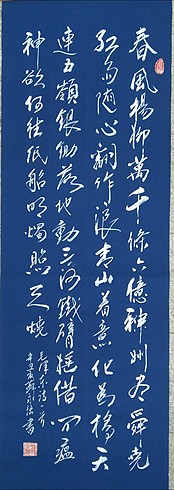 春風楊柳萬千條六億神州盡舜堯
紅雨隨心翻作浪青山着意化為橋天
連五嶺銀鋤落地動三河鐵臂搖借問瘟
神欲何往紙船明燭照天燒
毛澤東詩一首